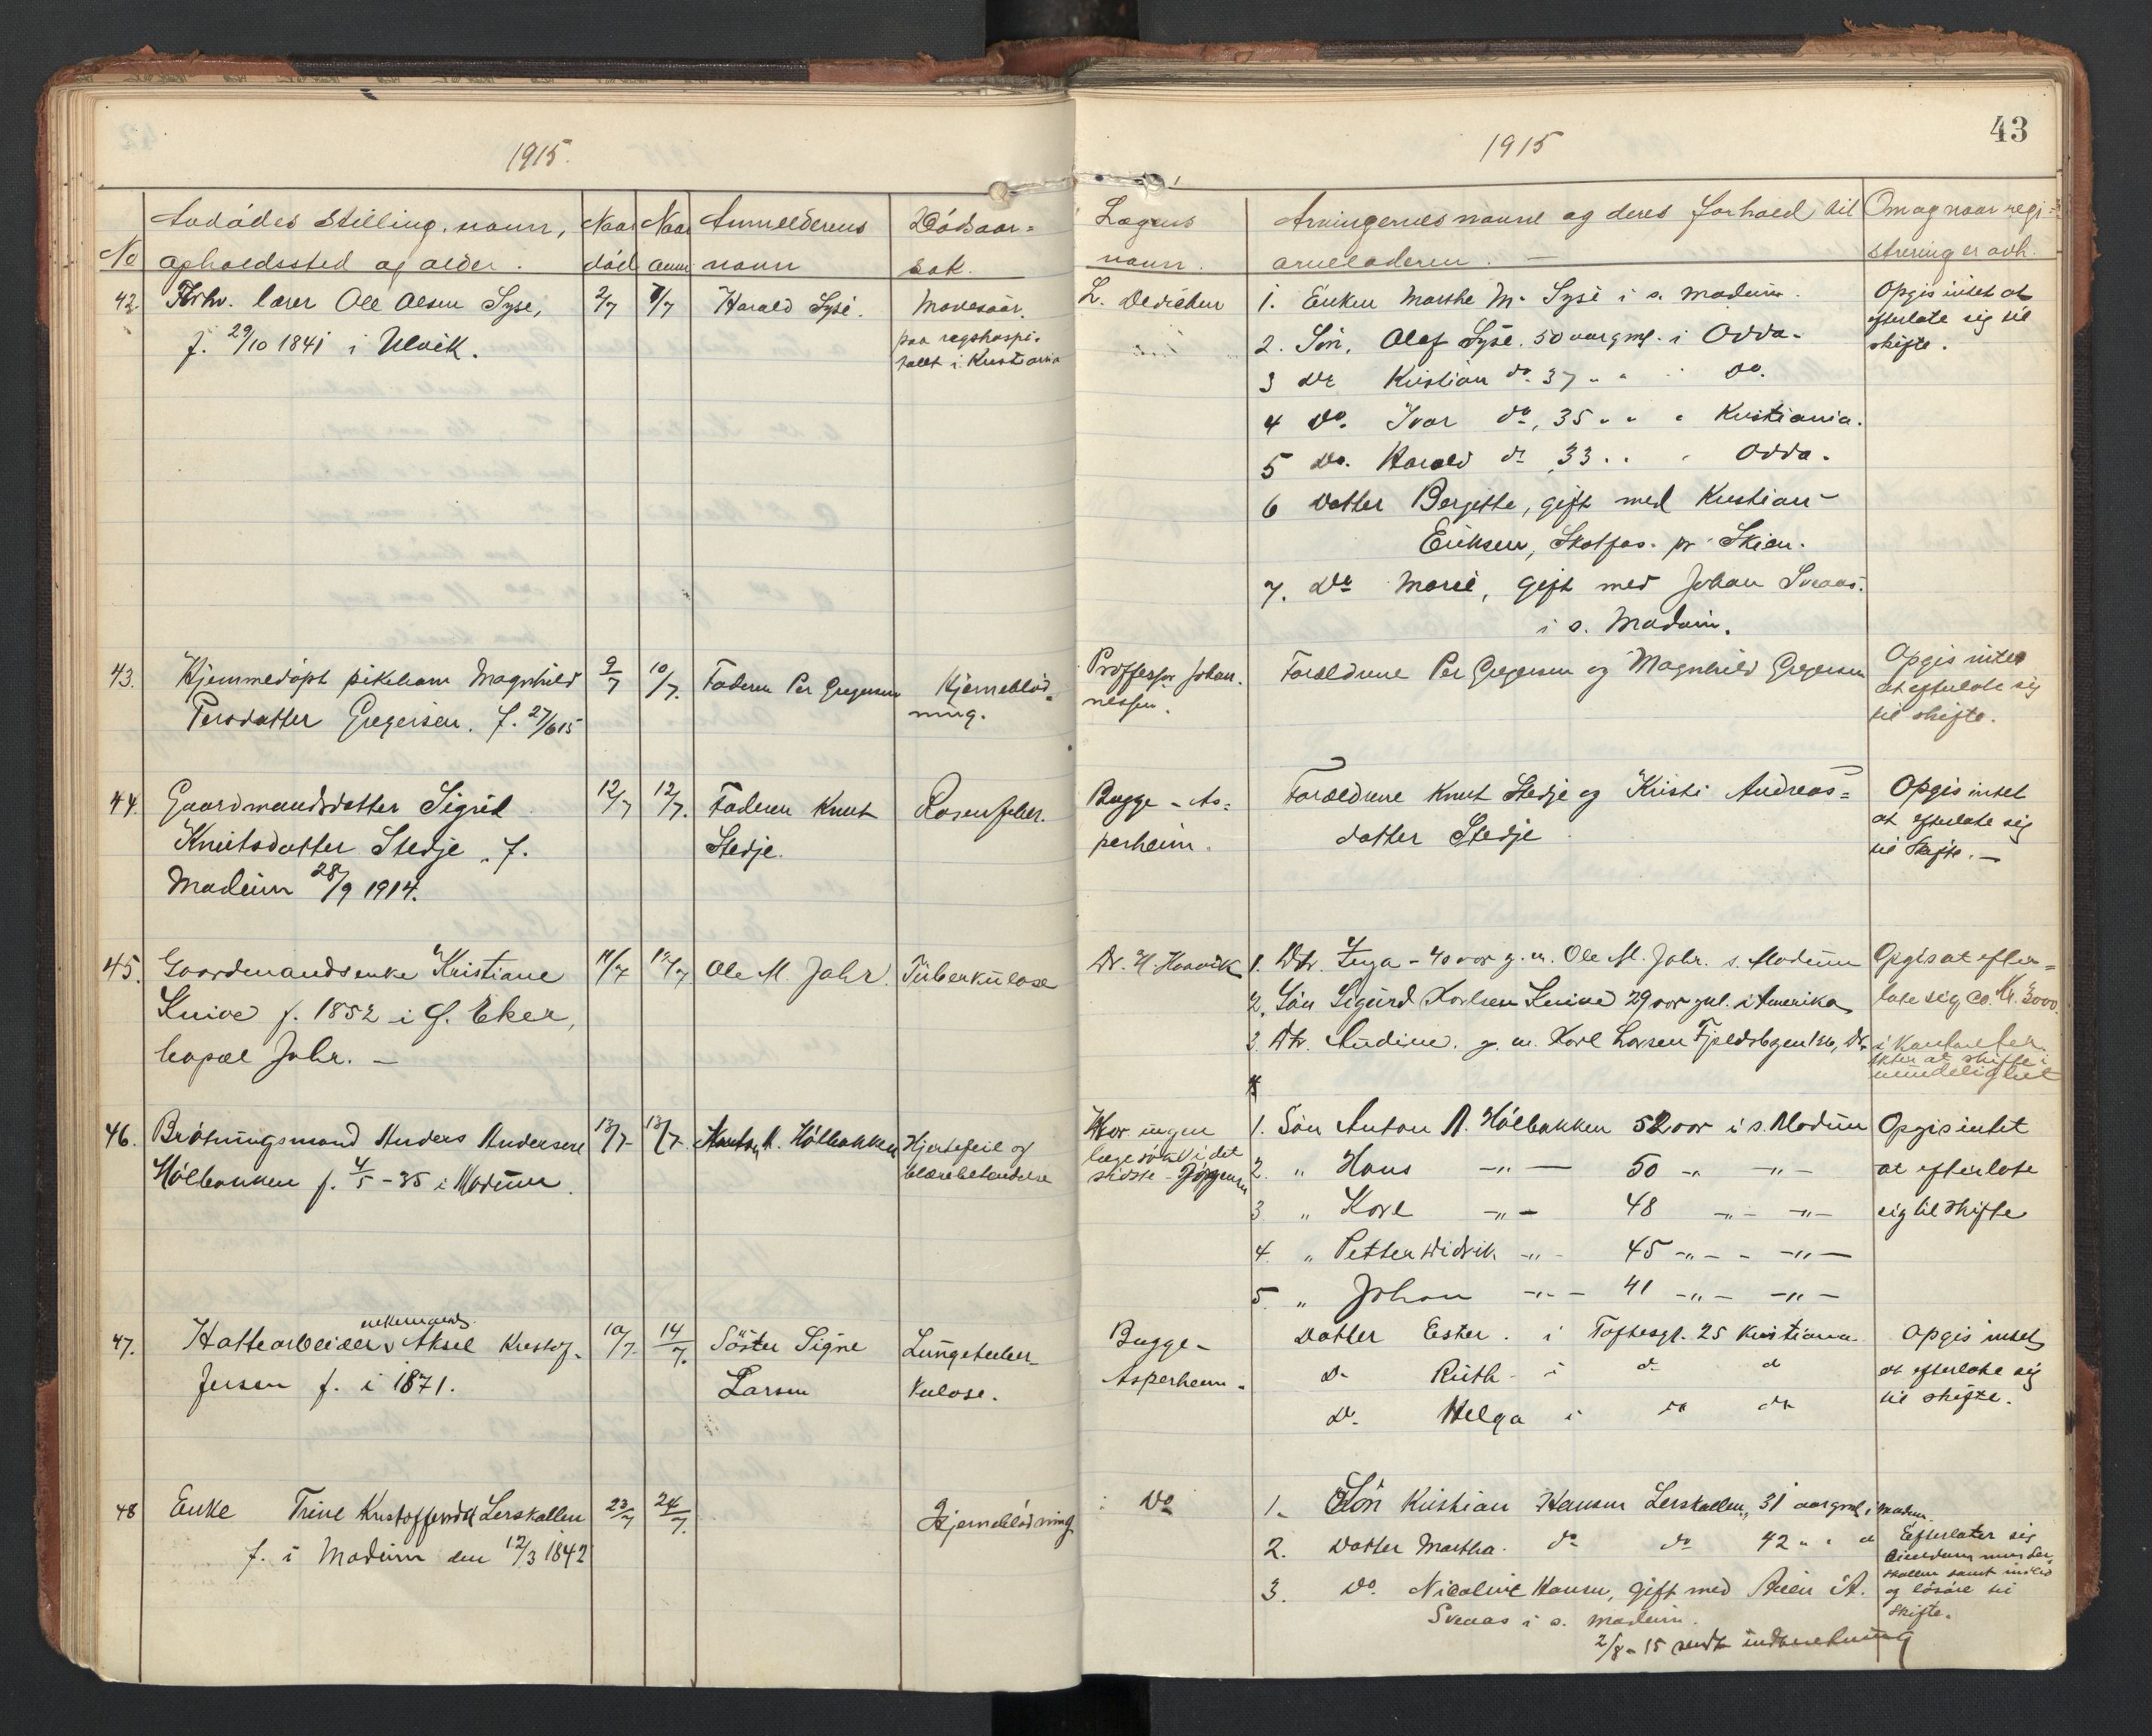 1915.
Avdødes stilling, navn,
opholdssted og alder.
No
Naar
død
Naar
anm
Anmelderens
navn
Dødsaar=
sak.
42. Fhv. lærer Ole Olsen Syse,
f. 29/10 1841 i Ulvik.
2/7
7/7
Harald Syse.
Mavesaar.
paa rigshospi-
talet i Kristiania
43. Hjemmedøpt pikebarn Magnhild
Persdatter Gregersen. f. 27/6 15
9/7
10/7.
Faderen Per Gregersen
Hjerneblød=
ning.
44. Gaardmandsdatter Sigrid
Knutsdatter Stedje. f.
Modum 28/9 1914.
12/7
12/7.
Faderen Knut
Stedje.
Rosenfeber.
45. Gaardmandsenke Kristiane
Knive f. 1852 i Ø. Eker,
bopæl Jahr. —
11/7
12/7
Ole M. Jahr.
Tuberkulose
46. Brøtningsmand Anders Andersen
Hølbakken f. 4/5 - 35 i Modum.
13/7
13/7
Anton A. Hølbakken
Hjertefeil og
blærebetændelse
47. Hattearbeider enkemand Aksel Kristof-
Jensen f. i 1871.
10/7
14/7.
Søster Signe
Larsen
Lungetuber-
kulose.
48 Enke Trine Kristoffersdt Lerskallen
f. i Modum den 12/3 1842
23/7
24/7.
Hjerneblødning
43
1915
Lægens
navn.
Arvingernes navne og deres forhold til
arveladeren. —
Om og naar regi-
strering er avh.
L. Dedichen
1. Enken Marthe M. Syse i s. Modum.
2. Søn, Olaf Syse. 50 aar gml. i Odda.
3 do Kristian do. 37 " " " Do.
4 do. Ivar do, 35 " " " Kristiania.
5 do. Harald do 33 " " " Odda.
6 Datter Bergitte, gift med Kristian
Eriksen, Skotfos. pr Skien.
7. do Marie, gift med Johan Sveaas.
i s. Modum.
Opgis intet at
efterlate sig til
skifte.
Proffessor Johan-
nessen.
Forældrene Per Gregersen og Magnhild Gregersen
Opgis intet
at efterlate sig
til skifte.
Bugge - As=
perheim.
Forældrene Knut Stedje og Kristi Andreas=
datter Stedje
Opgis intet
at efterlate sig
til Skifte. —
Dr. H Haavik
1. Dtr. Inga - 40 aar g. m. Ole M. Jahr. s. Modum
2. Søn Sigurd Karlsen Knive 29 aar gml. i Amerika
3. Dtr. Andine. g. m. Karl Larsen Fjeldsbgen 126, Dr.
Opgis at efter=
late sig ca. Kr. 3000.
i kontanter
skifte i
mindelighet
Har ingen
læge søkt i det
sidste - Jørgensen
1. Søn Anton A. Hølbakken 52 aar i s. Modum
2. " Hans -"- — 50 -" -"-
3 " Karl -"- 48 -"- -"-
4. " Petter Didrik -"- 45 -"- - -"-
5. " Johan -"- 41 -"- -"-
Opgis intet
at efterlate
sig til skifte
Bugge-
Asperheim.
Datter Ester. i Toftesgt. 25 Kristiania
Do Ruth - i do do
Do. Helga i do do
Opgis intet
at efterlate sig
til skifte.
Do
1. Søn Kristian Hansen Lerskallen, 31 aar gml. i Modum.
2. Datter Martha. do do 42 " " "
3. Do. Nicoline Hansen, gift med A.
Sveaas i s. Modum.
Efterlater sig
eiendommen Ler-
skallen samt indbo
og løsøre til
skifte.
2/8 - 15 sendt indberetning